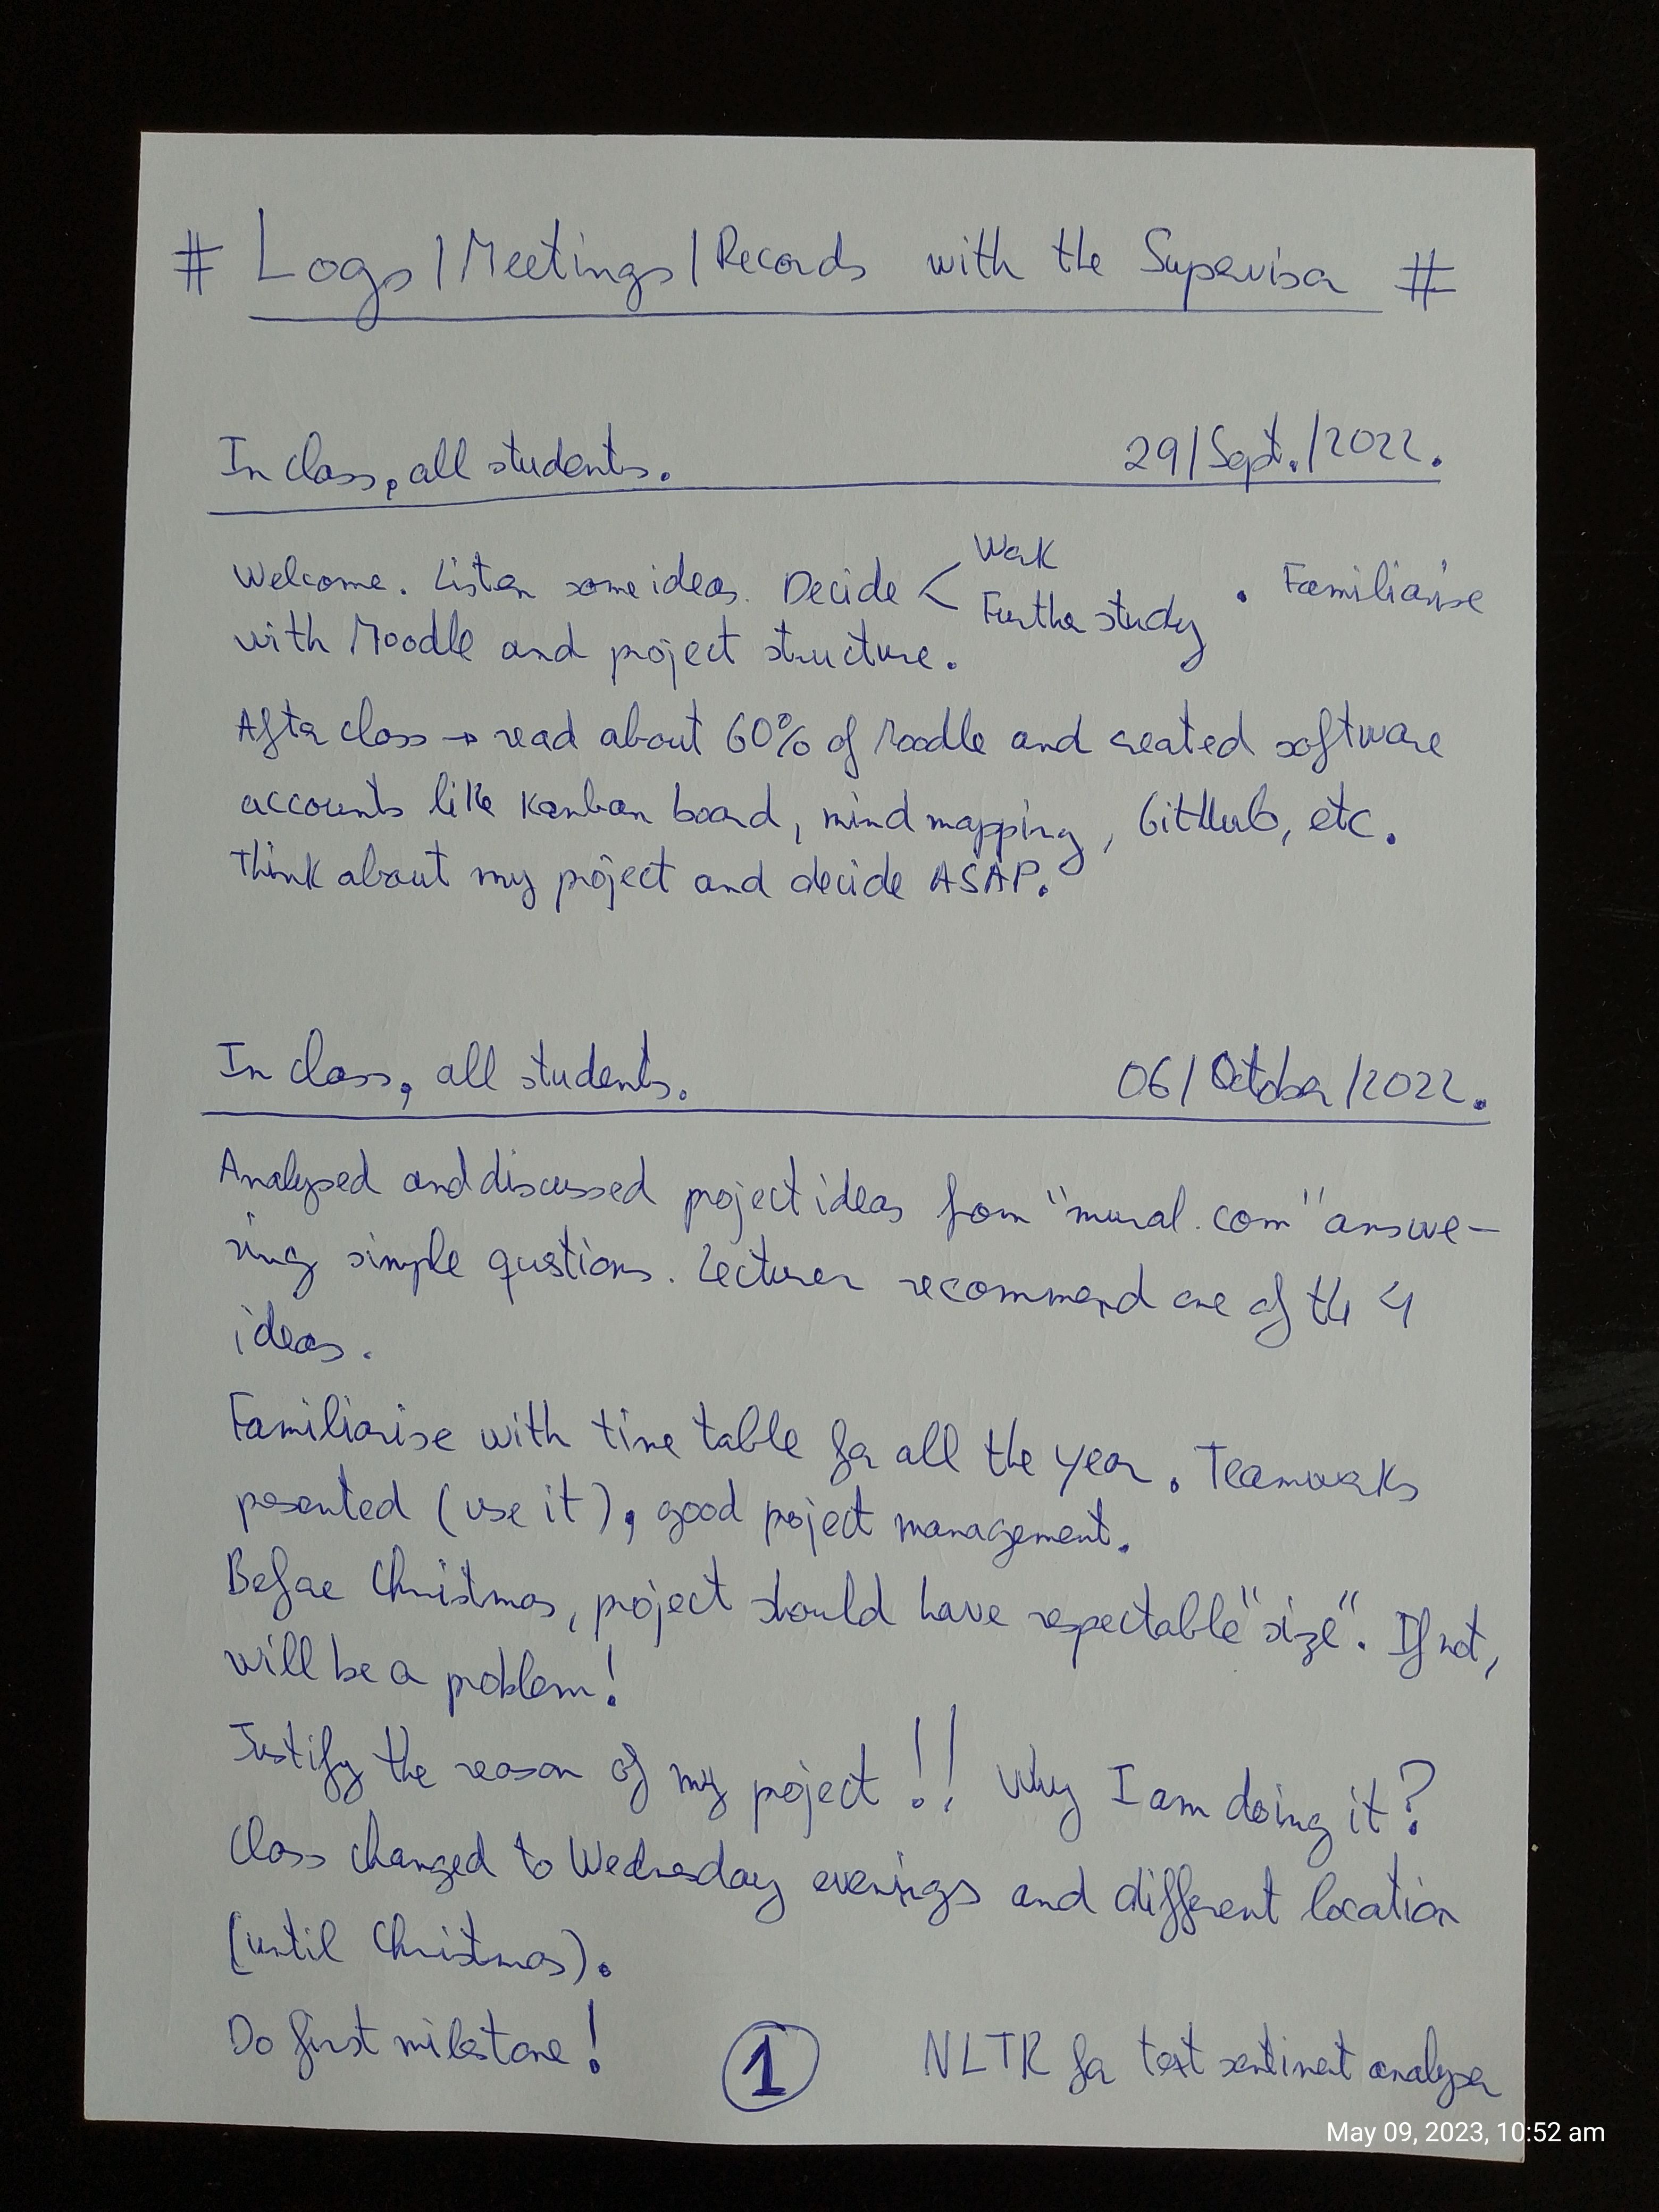 # Logs / Meetings / Records with the Supervisor #
In class, all students. 29/Sept./2022.
Welcome. Listen some ideas. Decide < Work
Further study . Familiarise
with Moodle and project structure.
After class → read about 60% of Moodle and created software
accounts like Kanban board, mind mapping, GitHub, etc.
Think about my project and decide ASAP.
In class, all students. 06/October/2022.
Analysed and discussed project ideas from "mural.com" answe-
ring simple qustions. Lecturer recommend one of the 4
ideas.
Familiarise with time table for all the year. Teamworks
presented (use it), good project management.
Before Christmas, project should have respectable "size". If not,
will be a problem!
Justify the reason of my project!! Why I am doing it?
Class changed to Wednesday evenings and different location
(until Christmas).
Do first milestone! 1 NLTK for text sentiment analyser
May 09, 2023, 10:52 am